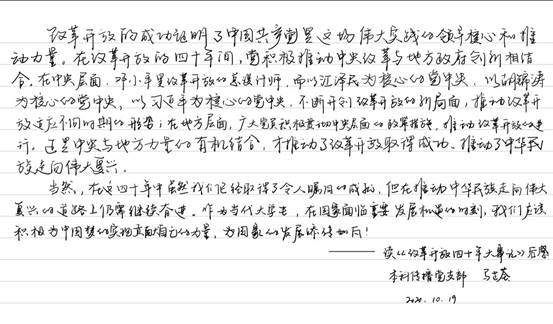 改革开放的成功证明了中国共产党是这场伟大实践的领导核心和推
动力量。在改革开放的四十年间，党积极推动中央改革与地方政府创新相结
合。在中央层面，邓小平是改革开放的总设计师，而以江泽民为核心的党中央，以胡锦涛
为核心的党中央，以习近平为核心的党中央，不断开创改革开放的新局面，推动改革开
放适应不同时期的形势；在地方层面，广大党员积极贯彻中央层面的改革措施，推动改革开放的进
行。这是中央与地方力量的有机结合，才推动了改革开放取得成功、推动了中华民
族走向伟大复兴。
当然，在这四十年中虽然我们已经取得了令人瞩目的成就，但在推动中华民族走向伟大
复兴的道路上仍需继续奋进。作为当代大学生，在国家面临重要发展机遇的时刻，我们应该
积极为中国梦的实现贡献自己的力量，为国家的发展添砖加瓦！
——读《改革开放四十年大事记》后感
本科传播党支部 马
2020.10.19